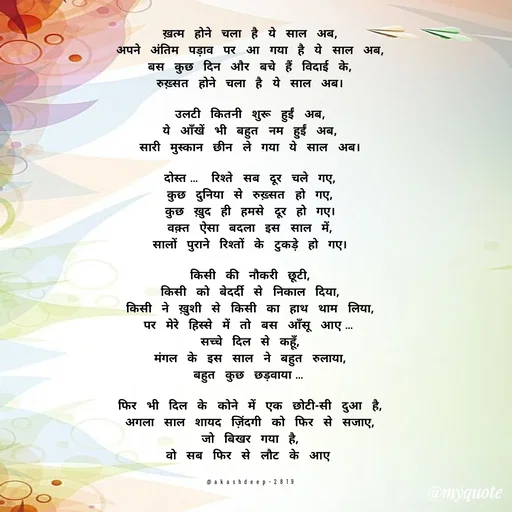 ख़त्म होने चला है ये साल अब,
अपने अंतिम पड़ाव पर आ गया है ये साल अब,
बस कुछ दिन और बचे हैं विदाई के,
रुख़सत होने चला है ये साल अब।
उलटी कितनी शुरू हुईं अब,
ये आँखें भी बहुत नम हुईं अब,
सारी मुस्कान छीन ले गया ये साल अब।
दोस्त... रिश्ते सब दूर चले गए,
कुछ दुनिया से रुख़सत हो गए,
कुछ ख़ुद ही हमसे दूर हो गए।
वक़्त ऐसा बदला इस साल में,
सालों पुराने रिश्तों के टुकड़े हो गए।
किसी की नौकरी छूटी,
किसी को बेदर्दी से निकाल दिया,
किसी ने ख़ुशी से किसी का हाथ थाम लिया,
पर मेरे हिस्से में तो बस आँसू आए...
सच्चे दिल से कहूँ,
मंगल के इस साल ने बहुत रुलाया,
बहुत कुछ छड़वाया...
फिर भी दिल के कोने में एक छोटी-सी दुआ है,
अगला साल शायद ज़िंदगी को फिर से सजाए,
जो बिखर गया है,
वो सब फिर से लौट के आए
@akashdeep-2819
@myquote